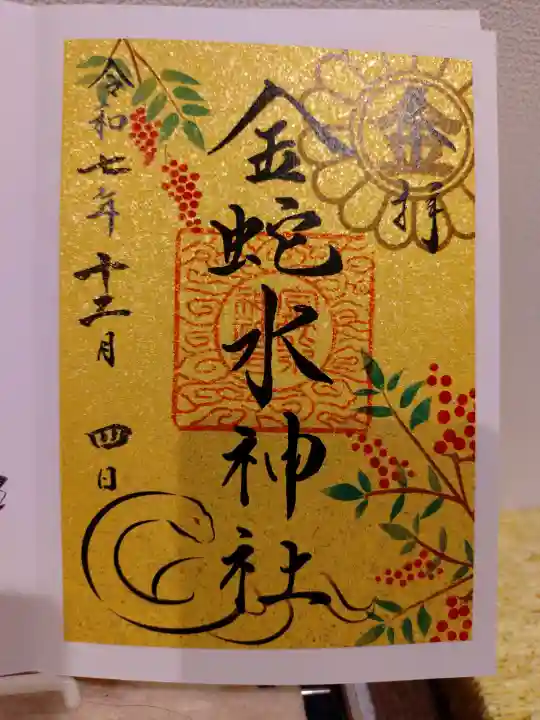 奉拝
金蛇水神社
令和七年十二月 四日